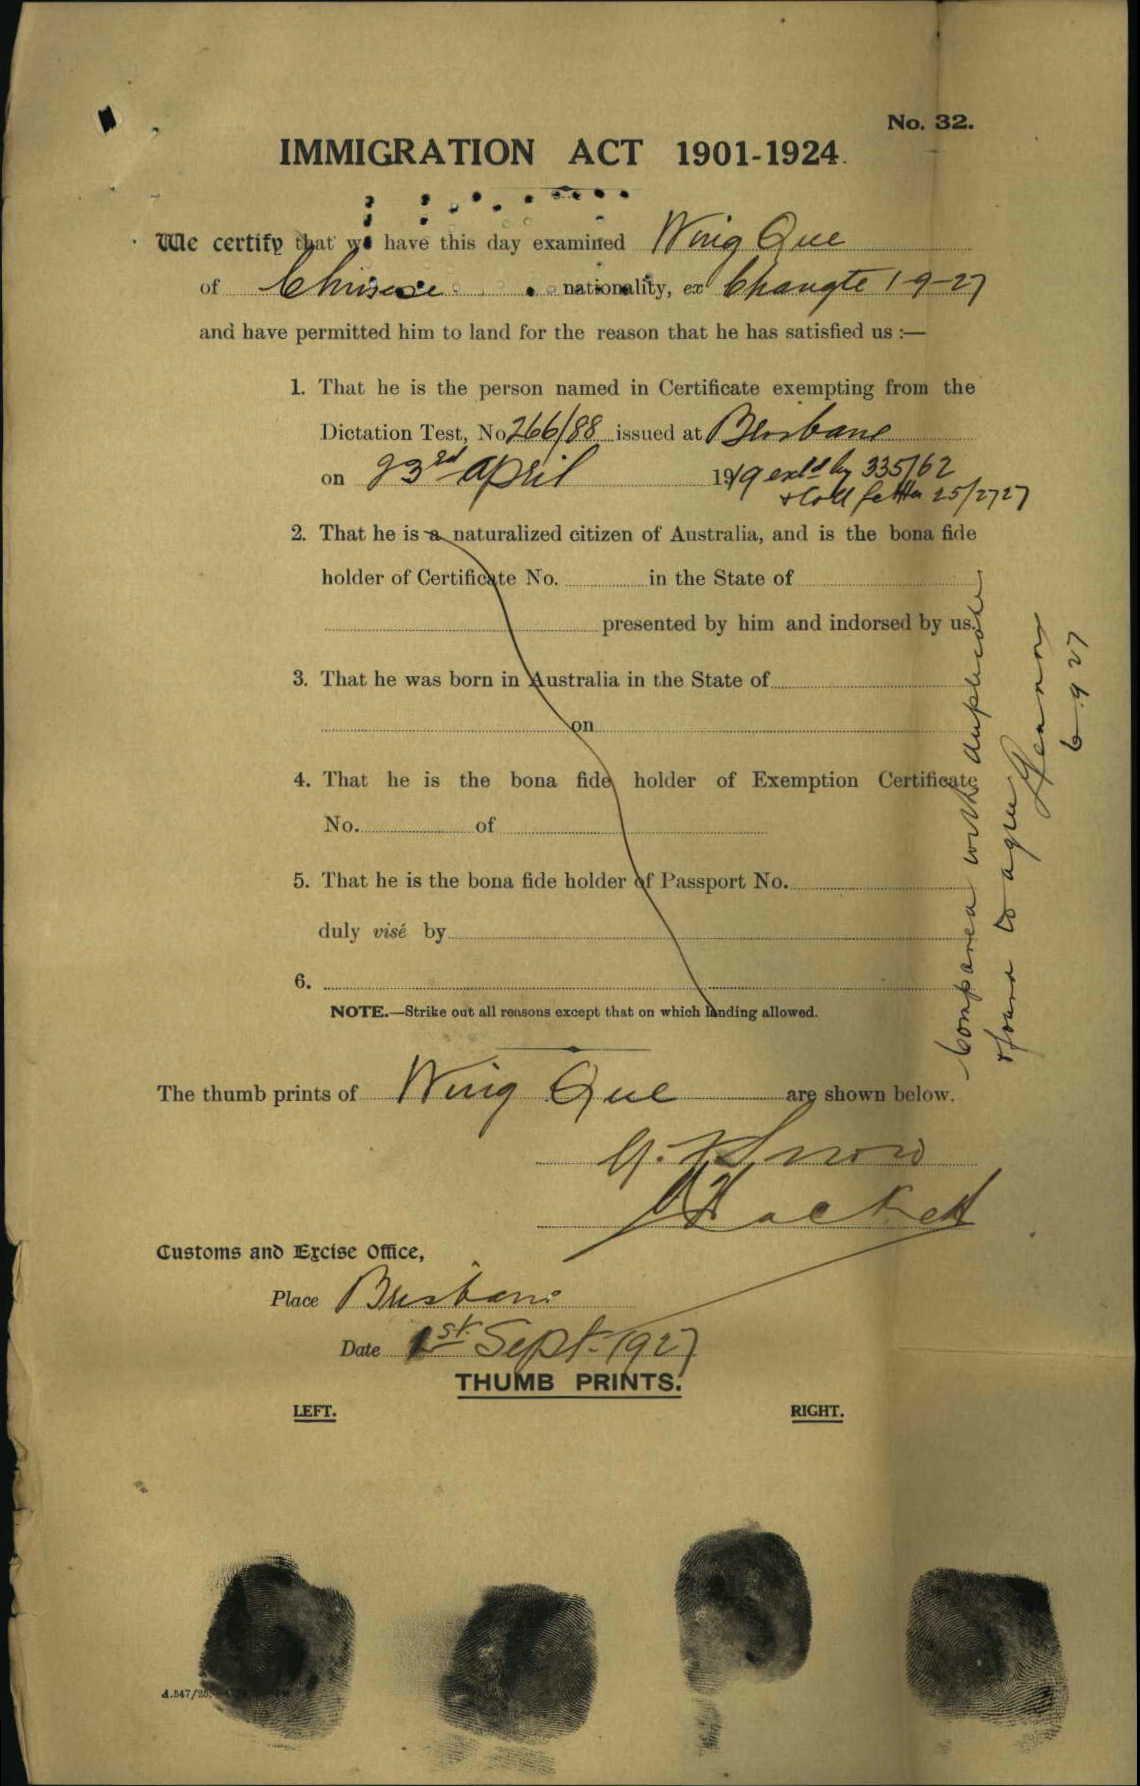 No. 32.
IMMIGRATION ACT 1901-1924.
We certify that we have this day examined Wing Que
of Chinese nationality, ex Changte 1-9-27
and have permitted him to land for the reason that he has satisfied us :—
1. That he is the person named in Certificate exempting from the
Dictation Test, No 266/88 issued at Brisbane
on 23rd April 1919 extd by 335/62
& Coll letter 25/2727
2. That he is a naturalized citizen of Australia, and is the bona fide
holder of Certificate No. in the State of
presented by him and indorsed by us.
3. That he was born in Australia in the State of
on
4. That he is the bona fide holder of Exemption Certificate
No. of
5. That he is the bona fide holder of Passport No.
duly visé by
6.
NOTE.—Strike out all reasons except that on which landing allowed.
The thumb prints of Wing Que are shown below.
Snow
Hackett
Customs and Excise Office,
Place Brisbane
Date 1st Sept. 1927
THUMB PRINTS.
LEFT. RIGHT.
A.547/25.
Compared with duplicate
& found to agree
6 9 27